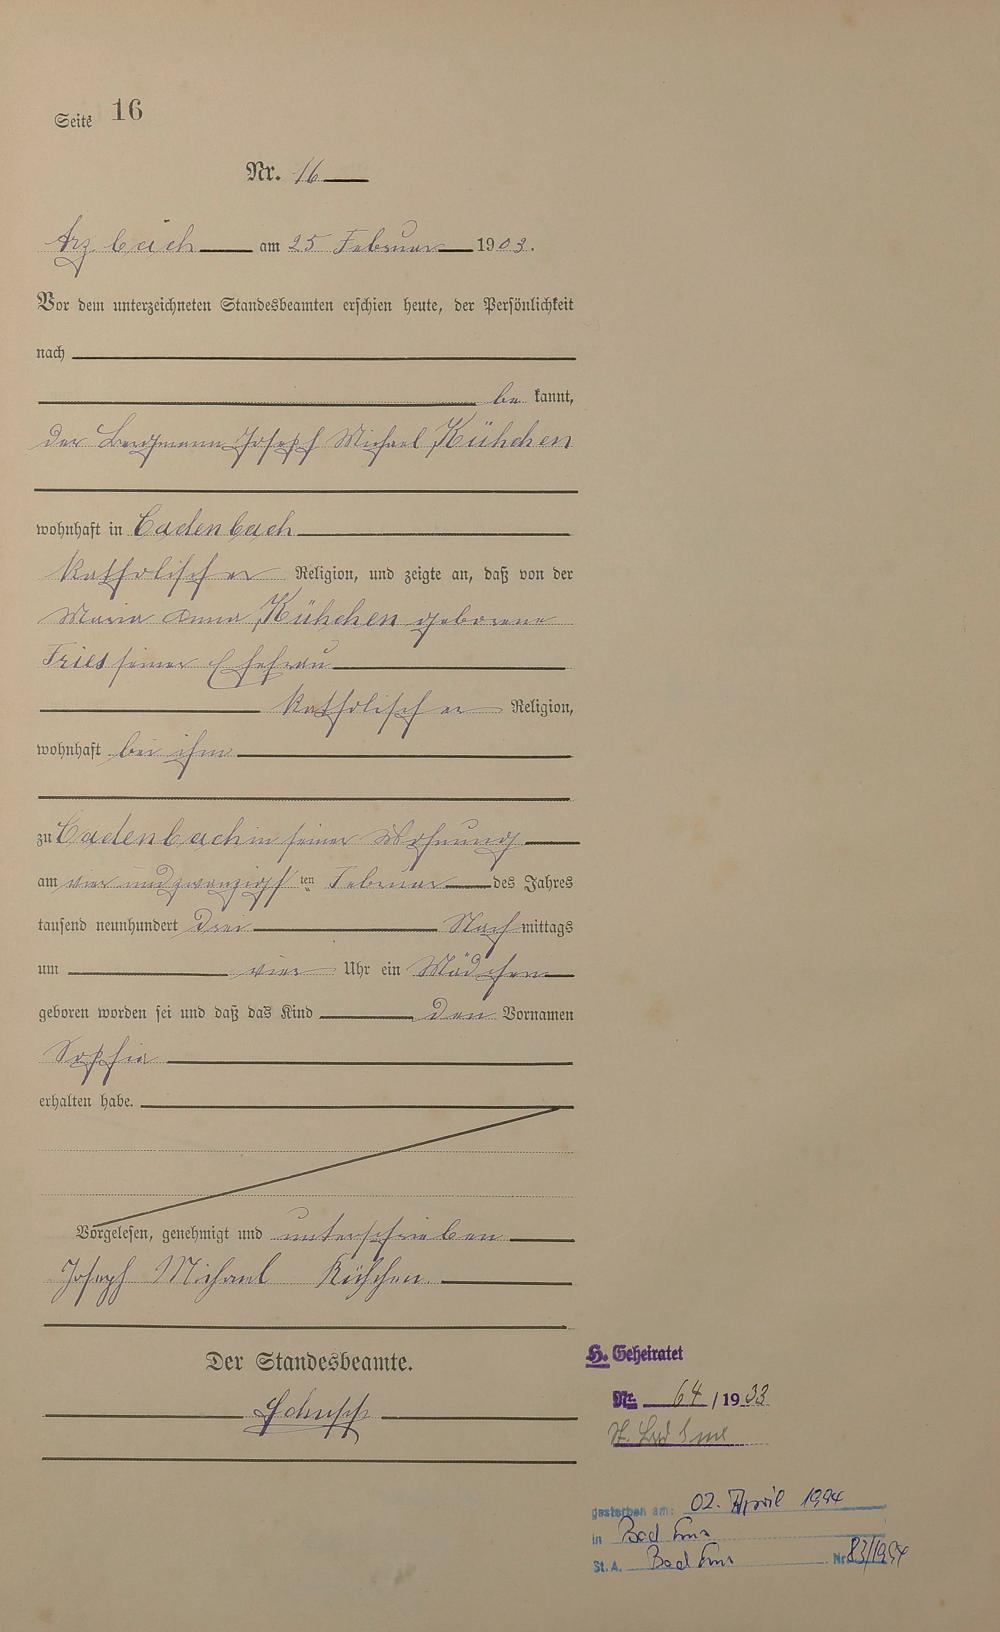 Seite 16
Nr. 16
Arzbach am 25 Februar 1903.
Vor dem unterzeichneten Standesbeamten erschien heute, der Persönlichkeit
nach
be kannt,
der Bergmann Joseph Michael Kühchen
wohnhaft in Cadenbach
katholischer Religion, und zeigte an, daß von der
Maria Anna Kühchen geborene
Fries seiner Ehefrau
katholischer Religion,
wohnhaft bei ihm
zu Cadenbach in seiner Wohnung
am vier und zwanzigsten Februar des Jahres
tausend neunhundert drei Nach mittags
um vier Uhr ein Mädchen
geboren worden sei und daß das Kind den Vornamen
Sophia
erhalten habe.
Vorgelesen, genehmigt und unterschrieben
Joseph Michael Kühchen
Der Standesbeamte.
Schupp
H. Geheiratet
Nr. 64 / 1933
St. Bad Ems
gestorben am: 02. April 1994
in Bad Ems
St. A. Bad Ems Nr. 83/1994